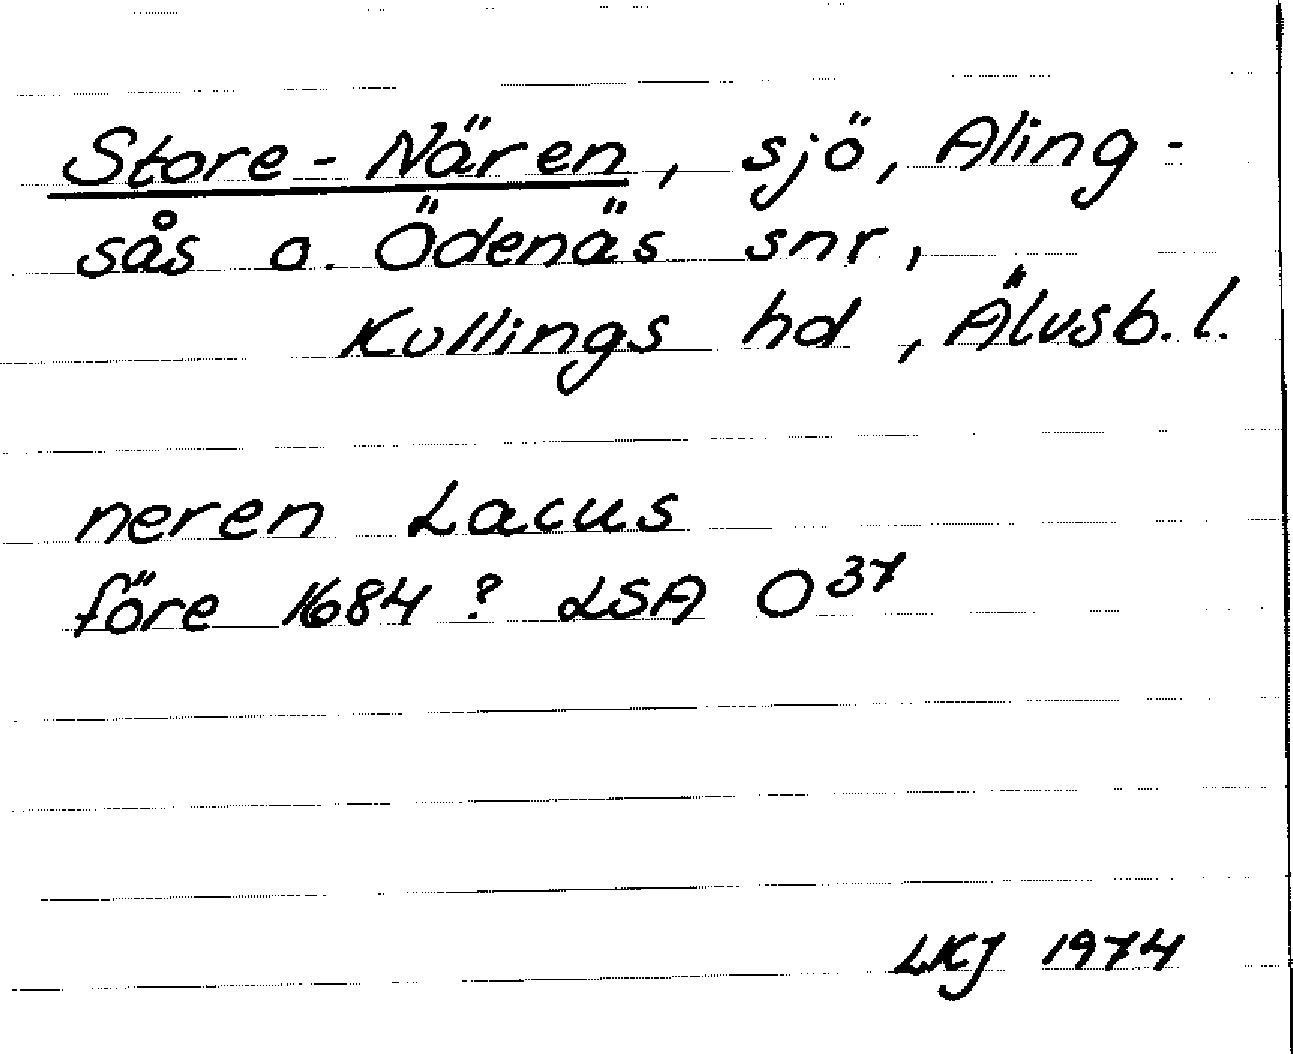 Store-Nären, sjö, Aling-
sås o. Ödenäs snr,
Kullings hd, Älvsb.l.
neren Lacus
före 1684? LSA O37
LKJ 1974